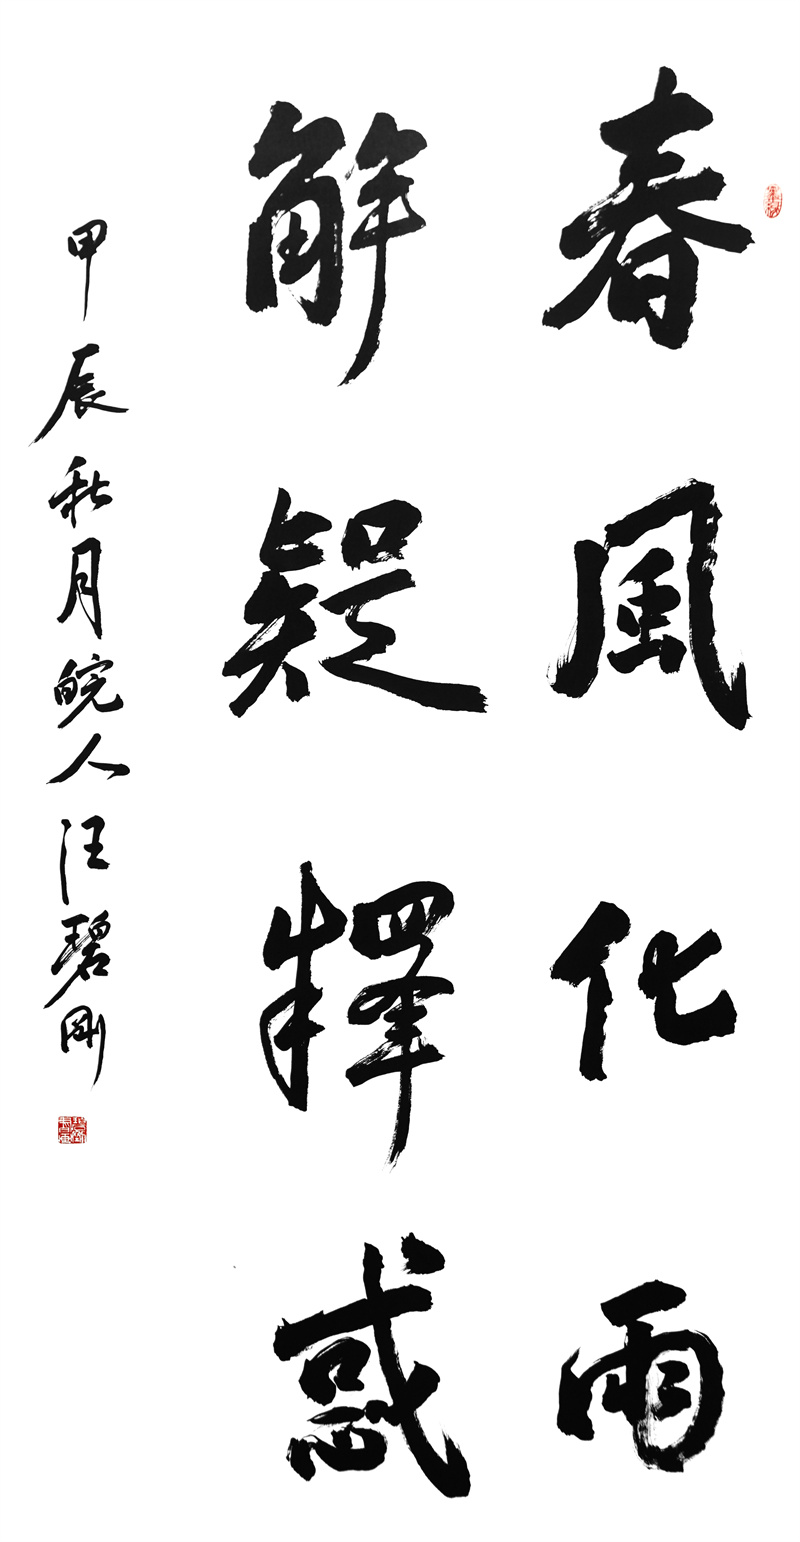 春風化雨
解疑釋惑
甲辰秋月皖人汪碧剛